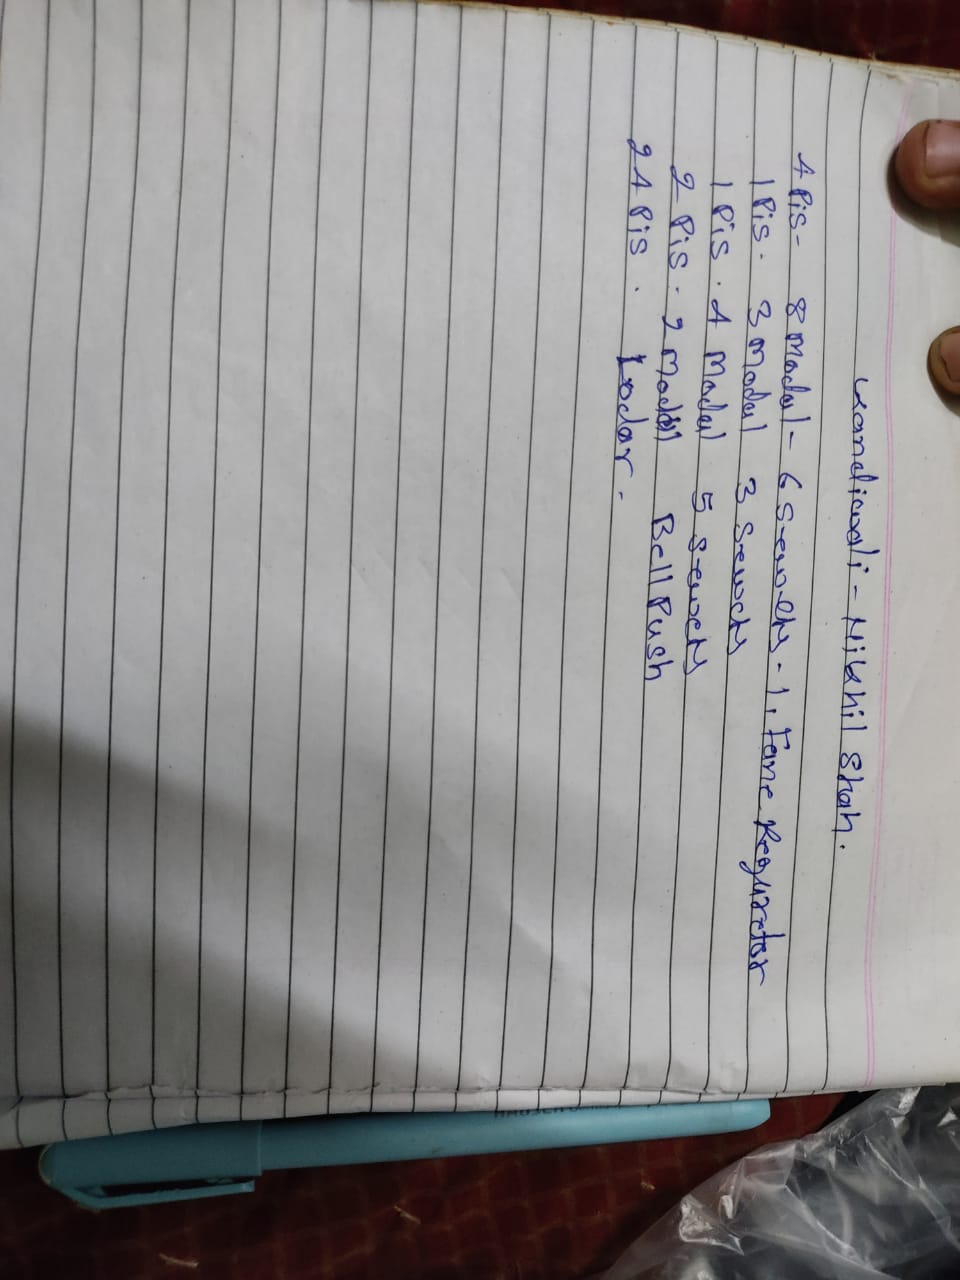 Kandiwali - Nikhil Shah.
4 Pis - 8 Modal - 6 Sewets - 1. Fane Reguretor
1 Pis. 3 Modal 3 Sewets
1 Pis. 4 Modal 5 Sewets
2 Pis. 2 Modal Bell Push
24 Pis. Lodar -